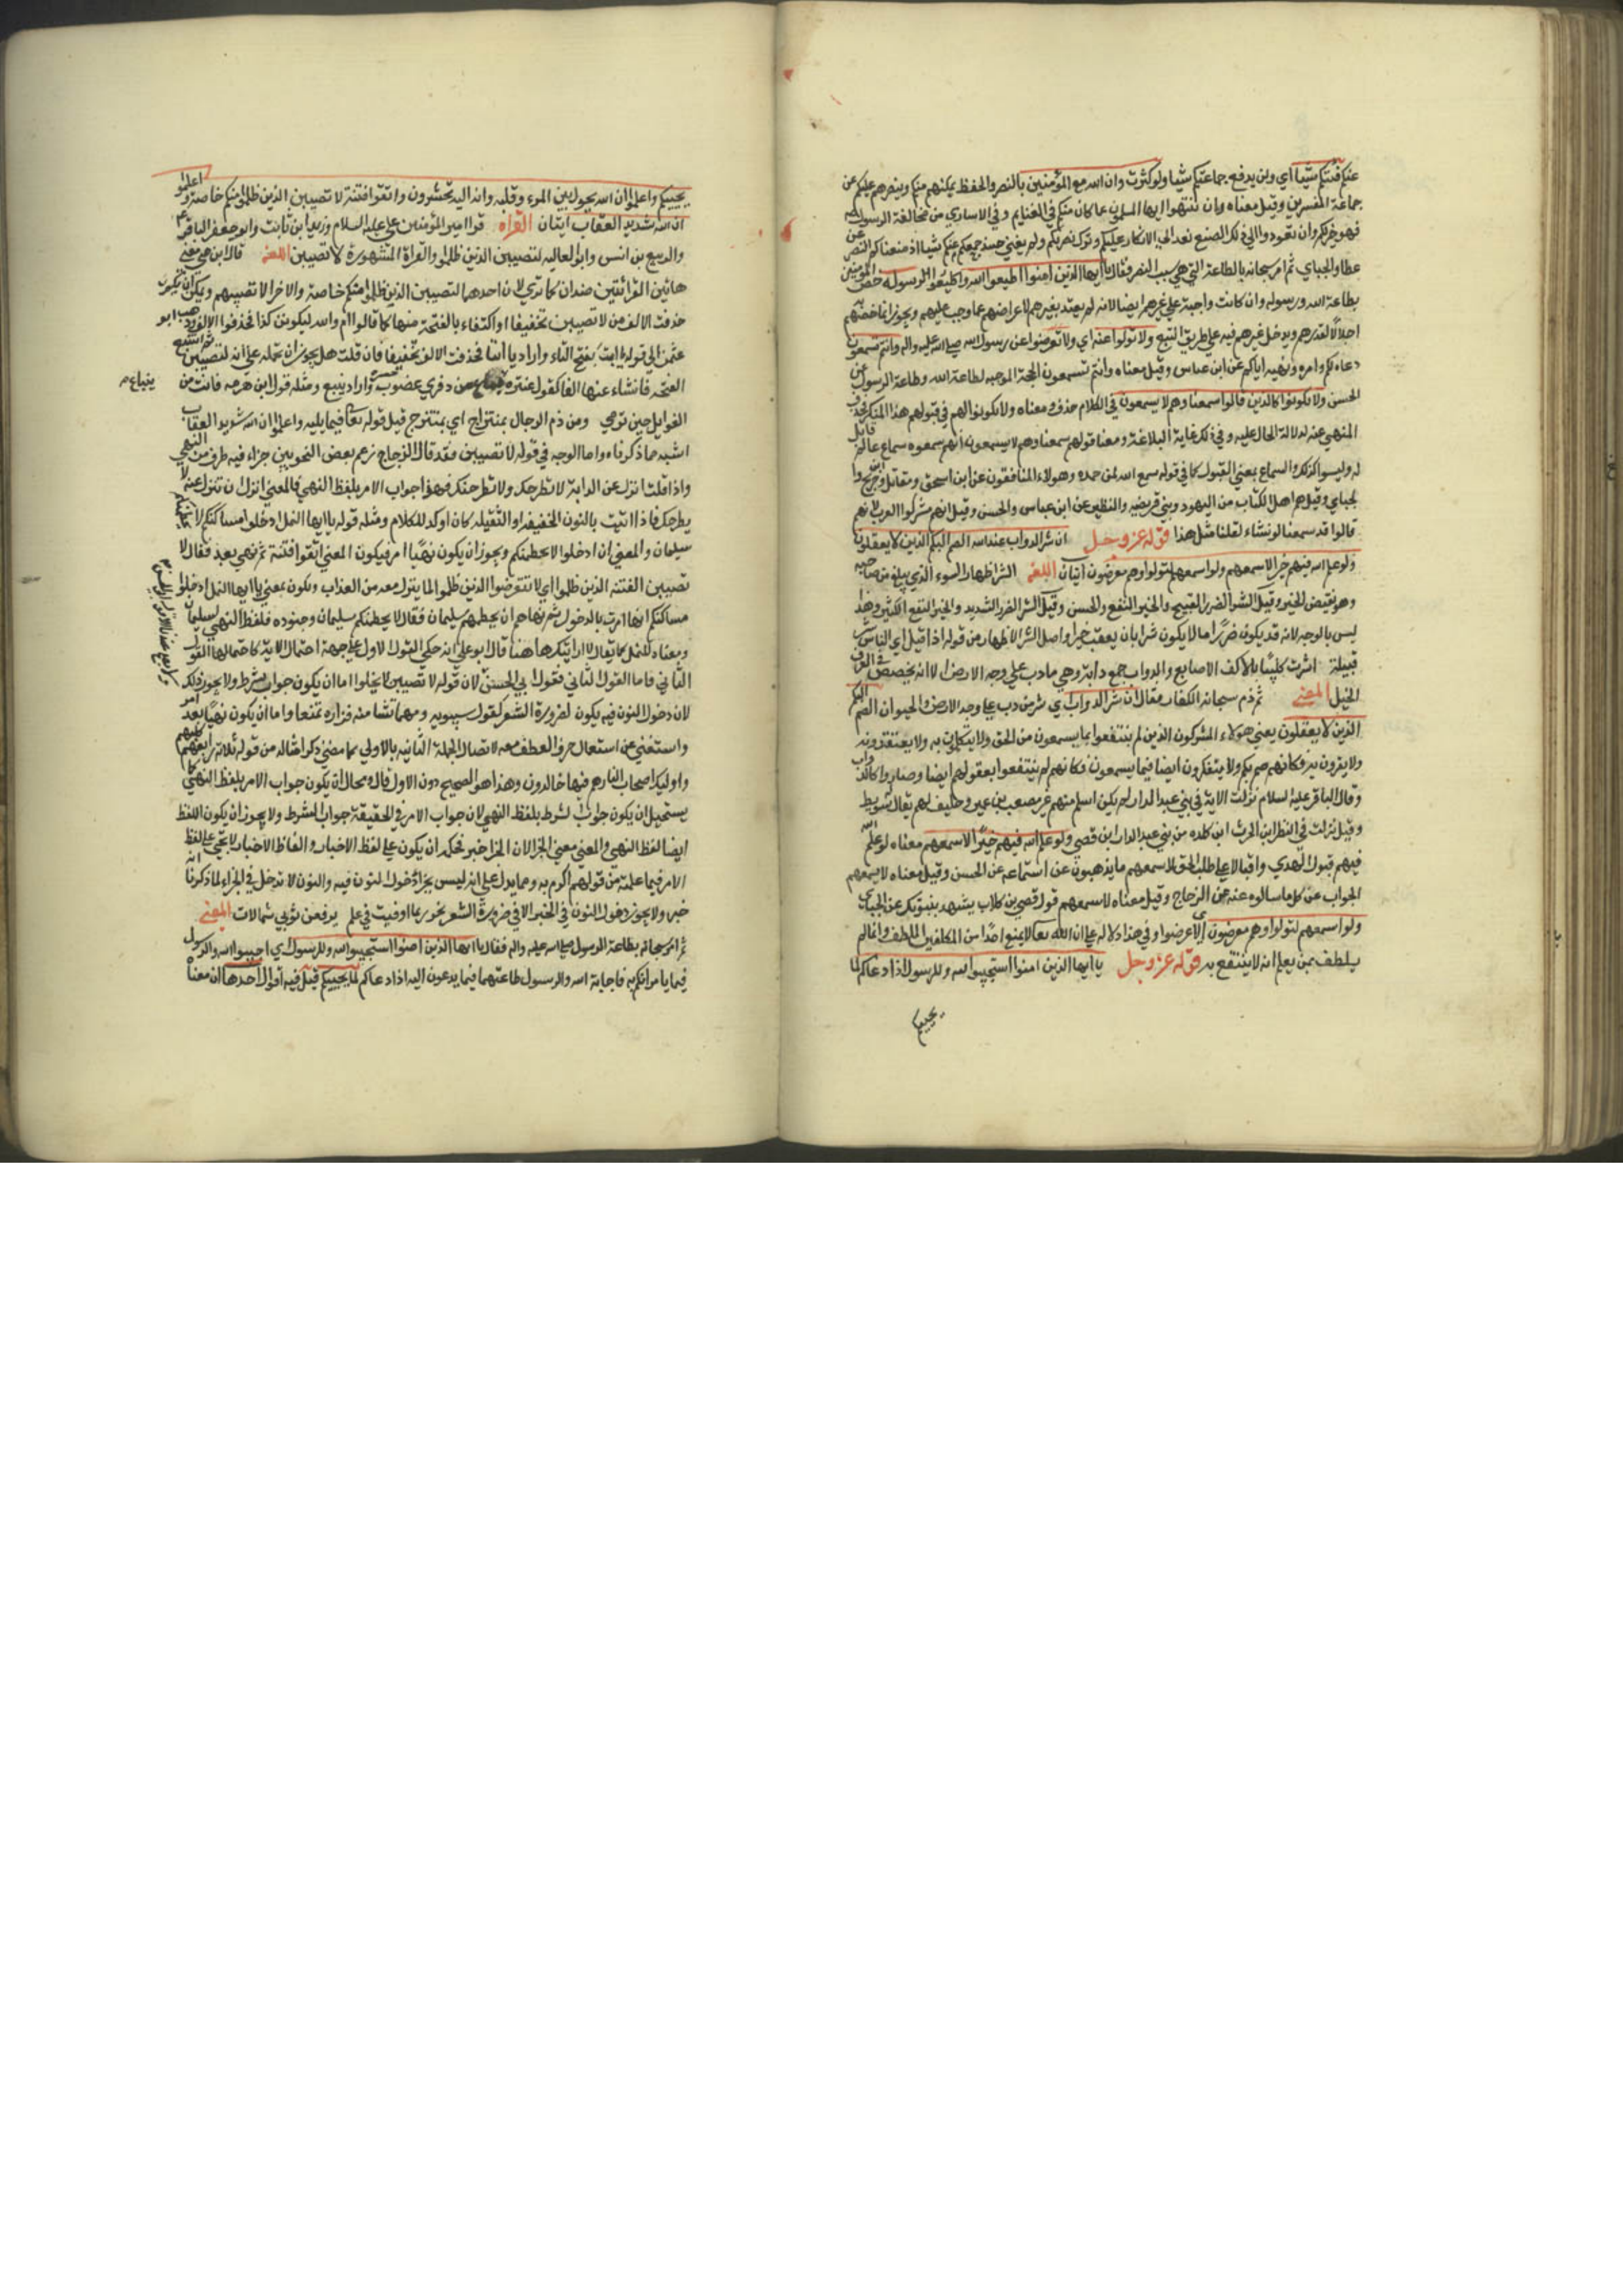 عنكم فئتكم شيئا اي ولن يدفع جماعتكم شيئا ولو كثرت وان الله مع المؤمنين بالنصر والحفظ يمكنهم منكم وينصرهم عليكم عن
جماعة المفسرين وقيل معناه وان تنتهوا ايها المسلمون عما كان منكم في الغنايم وفي الاساري من مخالفة الرسول
فهو خير لكم وان تعودوا الي ذلك الصنيع نعد الي الانكار عليكم وترك نصرتكم ولن يغني حينئذ جمعكم عنكم شيئا اذ منعناكم النصر عن
عطا والجباي ثم امر سبحانه بالطاعة التي هي سبب النصر فقال يا ايها الذين امنوا اطيعوا الله واطيعوا الرسول خص المؤمنين
بطاعة الله ورسوله وان كانت واجبة علي غيرهم ايضا لانه لم يعتد بغيرهم لاعراضهم عما وجب عليهم ويجوز انما خصهم
اجلالا لقدرهم ويدخل غيرهم فيه علي طريق التبع ولا تولوا عنه اي ولا تعرضوا عن رسول الله صلي الله عليه واله وانتم تسمعون
دعاه لكم وامره ونهيه اياكم عن ابن عباس وقيل معناه وانتم تسمعون الحجة الموجبه لطاعة الله وطاعة الرسول عن
الحسن ولا تكونوا كالذين قالوا سمعنا وهم لا يسمعون في الكلام حذف ومعناه ولا تكونوا الهم في قبولهم هذا المنكر فحذف
المنهي عنه لدلالة الحال عليه وفي ذلك غاية البلاغة ومعنا قولهم سمعنا وهم لا يسمعون انهم سمعوه سماع عالم قابل
له وليسوا كذلك والسماع بمعني القبول كما في قوله سمع الله لمن حمده وهولاء المنافقون عن ابن اسحق ومقاتل وابن جريج وا
لجباي وقيل هم اهل الكتاب من اليهود وبني قريضه والنظير عن ابن عباس والحسن وقيل انهم مشركوا العرب لانهم
قالوا قد سمعنا لو نشاء لقلنا مثل هذا قوله عز وجل ان شر الدواب عند الله الصم البكم الذين لا يعقلون
ولو علم الله فيهم خيرا لاسمعهم ولو اسمعهم لتولوا وهم معرضون ايتان اللغه الشر اظهار السوء الذي يبلغ من صاحبه
وهو نقيض الخير وقيل الشر الضرر القبيح والخير النفع والحسن وقيل الشر الضرر الشديد والخير النفع الكثير وهذا
ليس بالوجه لانه قد يكون ضررا ما لا يكون شرا بان يعقب خيرا واصل الشر الاظهار من قوله اذا قيل اي الناس شر
قبيلة اشرت كليبا بالاكف الاصابع والدواب جمع دابة وهي مادب علي وجه الارض الا انه يخصص في العرف
الخيل المعني ثم ذم سبحانه الكفار فقال ان شر الدواب اي شر من دب علي وجه الارض والحيوان الصم البكم
الذين لا يعقلون يعني هولاء المشركون الذين لم ينتفعوا بما يسمعون من الحق ولا يتكلمون به ولا يعتقدونه
ولا يقرون به فكانهم صم بكم ولا يتفكرون ايضا فيما يسمعون فكانهم لم ينتفعوا بعقولهم ايضا وصاروا كالدواب
وقال الباقر عليه السلام نزلت الاية في بني عبد الدار لم يكن اسلم منهم غير مصعب بن عمير وحليف لهم يقال له سويط
وقيل نزلت في النظر ابن الحرث ابن كلده من بني عبد الدار ابن قصي ولو علم الله فيهم خيرا لاسمعهم معناه لو علم الله
فيهم قبول الهدي واقبالا علي طلب الحق لاسمعهم ما يذهبون عن استماعه عن الحسن وقيل معناه لاسمعهم
الجواب عن كل ما سالوه عنه عن الزجاج وقيل معناه لاسمعهم قول قصي بن كلاب يشهد بنبوتك عن الجباي
ولو اسمعهم لتولوا وهم معرضون اي لاعرضوا وفي هذا دلالة علي ان الله تعالي لا يمنع احدا من المكلفين اللطف وانما لم
يلطف بمن يعلم انه لا ينتفع به قوله عز وجل يا ايها الذين امنوا استجيبوا لله وللرسول اذا دعاكم لما
يحييكم
يحييكم واعلموا ان الله يحول بين المرء وقلبه وانه اليه تحشرون واتقوا فتنة لا تصيبن الذين ظلموا منكم خاصة واعلموا
ان الله شديد العقاب ايتان القراه قرا امير المؤمنين علي عليه السلام وزيد ابن ثابت وابو جعفر الباقر
والربيع بن انس وابو العاليه لتصيبن الذين ظلموا والقراة المشهورة لا تصيبن اللغه قال ابن جني معني
هاتين القرائتين ضدان كما تري لان احدهما لتصيبن الذين ظلموا منكم خاصة والاخر لا تصيبهم ويمكن ان يكون
حذفت الالف من لا تصيبن تخفيفا واكتفاء بالفتحة منها كما قالوا ام والله ليكونن كذا فحذفوا الالف وذهب ابو
عثمن الي قوله يا ابت بفتح التاء واراد يا ابتا فحذفت الالف تخفيفا فان قلت هل يجوز ان تحمله علي انه لتصيبن ثم اشبع
الفتحه فانشاء عنها الفا كقول عنتره ينباع من دفري عضوب واراد ينبع ومثله قول ابن هرمه فانت من
ينباع
الغوايل حين ترمي ومن ذم الرجال بمنتزاح اي بمنتزح قيل قوله تعالي فيما يليه واعلموا ان الله شديد العقاب
اشبه ما ذكرناه واما الوجه في قوله لا تصيبن فقد قال الزجاج زعم بعض النحويين جزاء فيه طرف من النهي
واذا قلت انزل عن الدابة لا تطرحك ولا تطرحنك فهو جواب الامر بلفظ النهي فالمعني انزل ان تنزل عنه لا
يطرحك فاذا اتيت بالنون الخفيفه او الثقيله كان اوكد للكلام ومثله قوله يا ايها النمل ادخلوا مساكنكم لا يحطمنكم
سليمان والمعني ان ادخلوا لا يحطمنكم ويجوز ان يكون نهيا امر فيكون المعني اتقوا فتنة ثم نهي بعد فقال لا
تصيبن الفتنه الذين ظلموا اي لا تتعرضوا الذين ظلموا لما ينزل معه من العذاب ويكون بمعني يا ايها النمل ادخلوا
مساكنكم انها امرت بالدخول ثم نهاهم ان يحطمهم سليمان فقال لا يحطمنكم سليمان وجنوده فلفظ النهي لسليمان
ومعناه للنمل كما يقال لا اراينك ههنا قال ابو علي انه حكي القول الاول علي جهة احتمال الاية كما حتمالها القول
الثاني فاما القول الثاني فقول ابي الحسن لان قوله لا تصيبن لا يخلوا اما ان يكون جواب شرط ولا يجوز ذلك
لان دخول النون فيه يكون لضرورة الشعر كقول سيبويه ومهما تشا منه فزاره تمنعا واما ان يكون نهيا بعد امر
واستغني عن استعمال حرف العطف معه لاتصال الجملة الثانيه بالاولي كما مضي ذكر امثاله من قوله ثلاثة رابعهم كلبهم
واوليك اصحاب النار هم فيها خالدون وهذا هو الصحيح دون الاول قال ومحال ان يكون جواب الامر بلفظ النهي كما
يستحيل ان يكون جواب الشرط بلفظ النهي لان جواب الامر في الحقيقة جواب الشرط ولا يجوز ان يكون اللفظ
ايضا لفظ النهي والمعني معني الجزا لان الجزا خبر فحكمه ان يكون علي لفظ الاخبار والفاظ الاخبار لا تجي علي لفظ
الامر فيما علمته من قولهم اكرم به ومما يدل علي انه ليس بجزاء دخول النون فيه والنون لا تدخل في الجزاء لما ذكرنا انه
خبر ولا يجوز دخول النون في الخبر الا في ضرورة الشعر نحو ربما اوفيت في علم يرفعن ثوبي شمالات المعني
ثم امر سبحانه بطاعة الرسول صلي الله عليه واله فقال يا ايها الذين امنوا استجيبوا لله وللرسول اي اجيبوا الله والرسول
فيما يامرانكم به فاجابة الله والرسول طاعتهما فيما يدعون اليه اذا دعاكم لما يحييكم قيل فيه اقوال احدها ان معناه